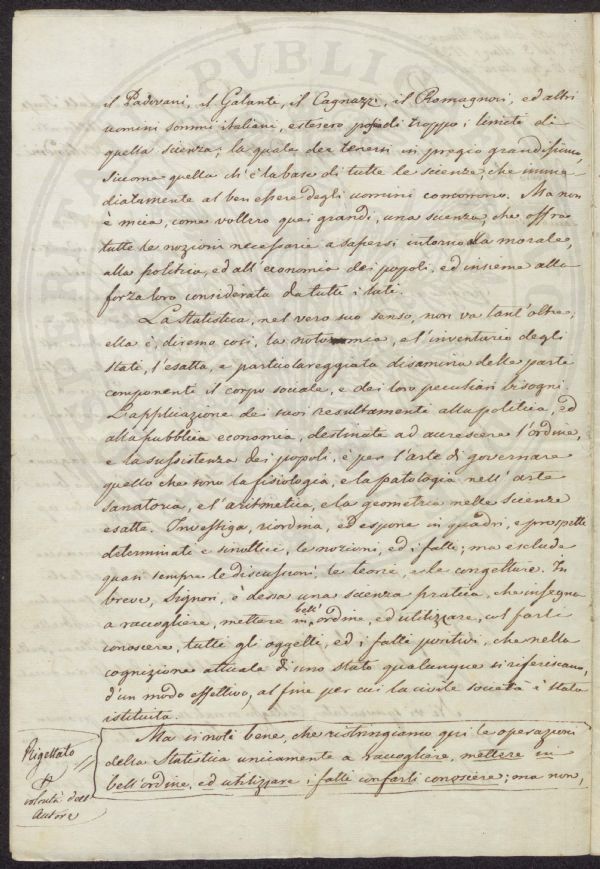 il Padovani, il Galanti, il Cagnazzi, il Romagnosi, ed altri
uomini sommi italiani, estesero di troppo i limiti di
quella scienza; la quale dee tenersi in pregio grandissimo,
siccome quella ch'è la base di tutte le scienze, che imme-
diatamente al ben essere degli uomini concorrono. Ma non
è mica, come vollero quei grandi, una scienza, che offra
tutte le nozioni necessarie a sapersi intorno alla morale,
alla politica, ed all'economia dei popoli, ed insieme alla
forza loro considerata da tutti i lati.
La Statistica, nel vero suo senso, non va tant'oltre,
ella è, diremo così, la notomia, e l'inventario degli
Stati, l'esatta, e particolareggiata disamina delle parti
componenti il corpo sociale, e dei loro peculiari bisogni.
L'applicazione dei suoi resultamenti alla politica, ed
alla pubblica economia, destinate ad accrescere l'ordine,
e la sussistenza dei popoli, è per l'arte di governare
quello che sono la fisiologia, e la patologia nell'arte
sanatoria, e l'aritmetica, e la geometria nelle scienze
esatte. Investiga, riordina, ed espone in quadri, e prospetti
determinati e sinottici, le nozioni, ed i fatti; ma esclude
quasi sempre le discussioni, le teorie, e le congetture. In
breve, Signori, è dessa una scienza pratica, che insegna
a raccogliere, mettere in bell'ordine, ed utilizzare, col farli
conoscere, tutti gli oggetti, ed i fatti positivi, che nella
cognizione attuale di uno stato qualunque si riferiscano,
d'un modo effettivo, al fine per cui la civile società è stata
istituita.
Ma si noti bene, che ristringiamo qui le operazioni
della Statistica unicamente a raccogliere, mettere in
bell'ordine, ed utilizzare i fatti con farli conoscere; ma non,
Rigettato
volontà dell'
Autore
PVBLIC